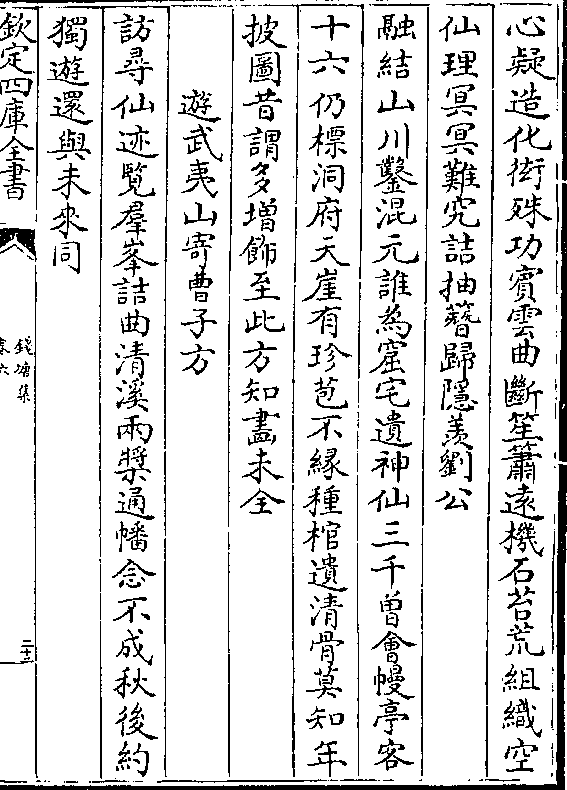 心疑造化衒殊功賓雲曲斷笙簫遠機石苔荒組織空
仙理冥冥難究詰抽簪歸隱羨劉公
融結山川鑿混元誰為窟宅遺神仙三千曾會幔亭客
十六仍標洞府天崖有珍苞不緣種棺遺清骨莫知年
披圖昔謂多增飾至此方知畫未全
遊武夷山寄曹子方
訪尋仙迹覽羣峯詰曲清溪兩槳通幡念不成秋後約
獨遊還與未來同
欽定四庫全書
錢塘集
卷六
二十三